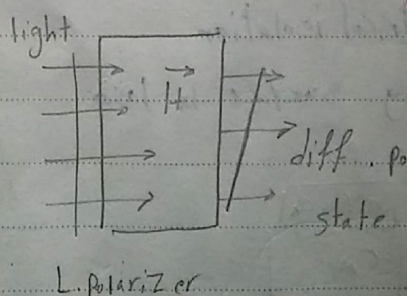 light
H
diff. po
state
L. polarizer